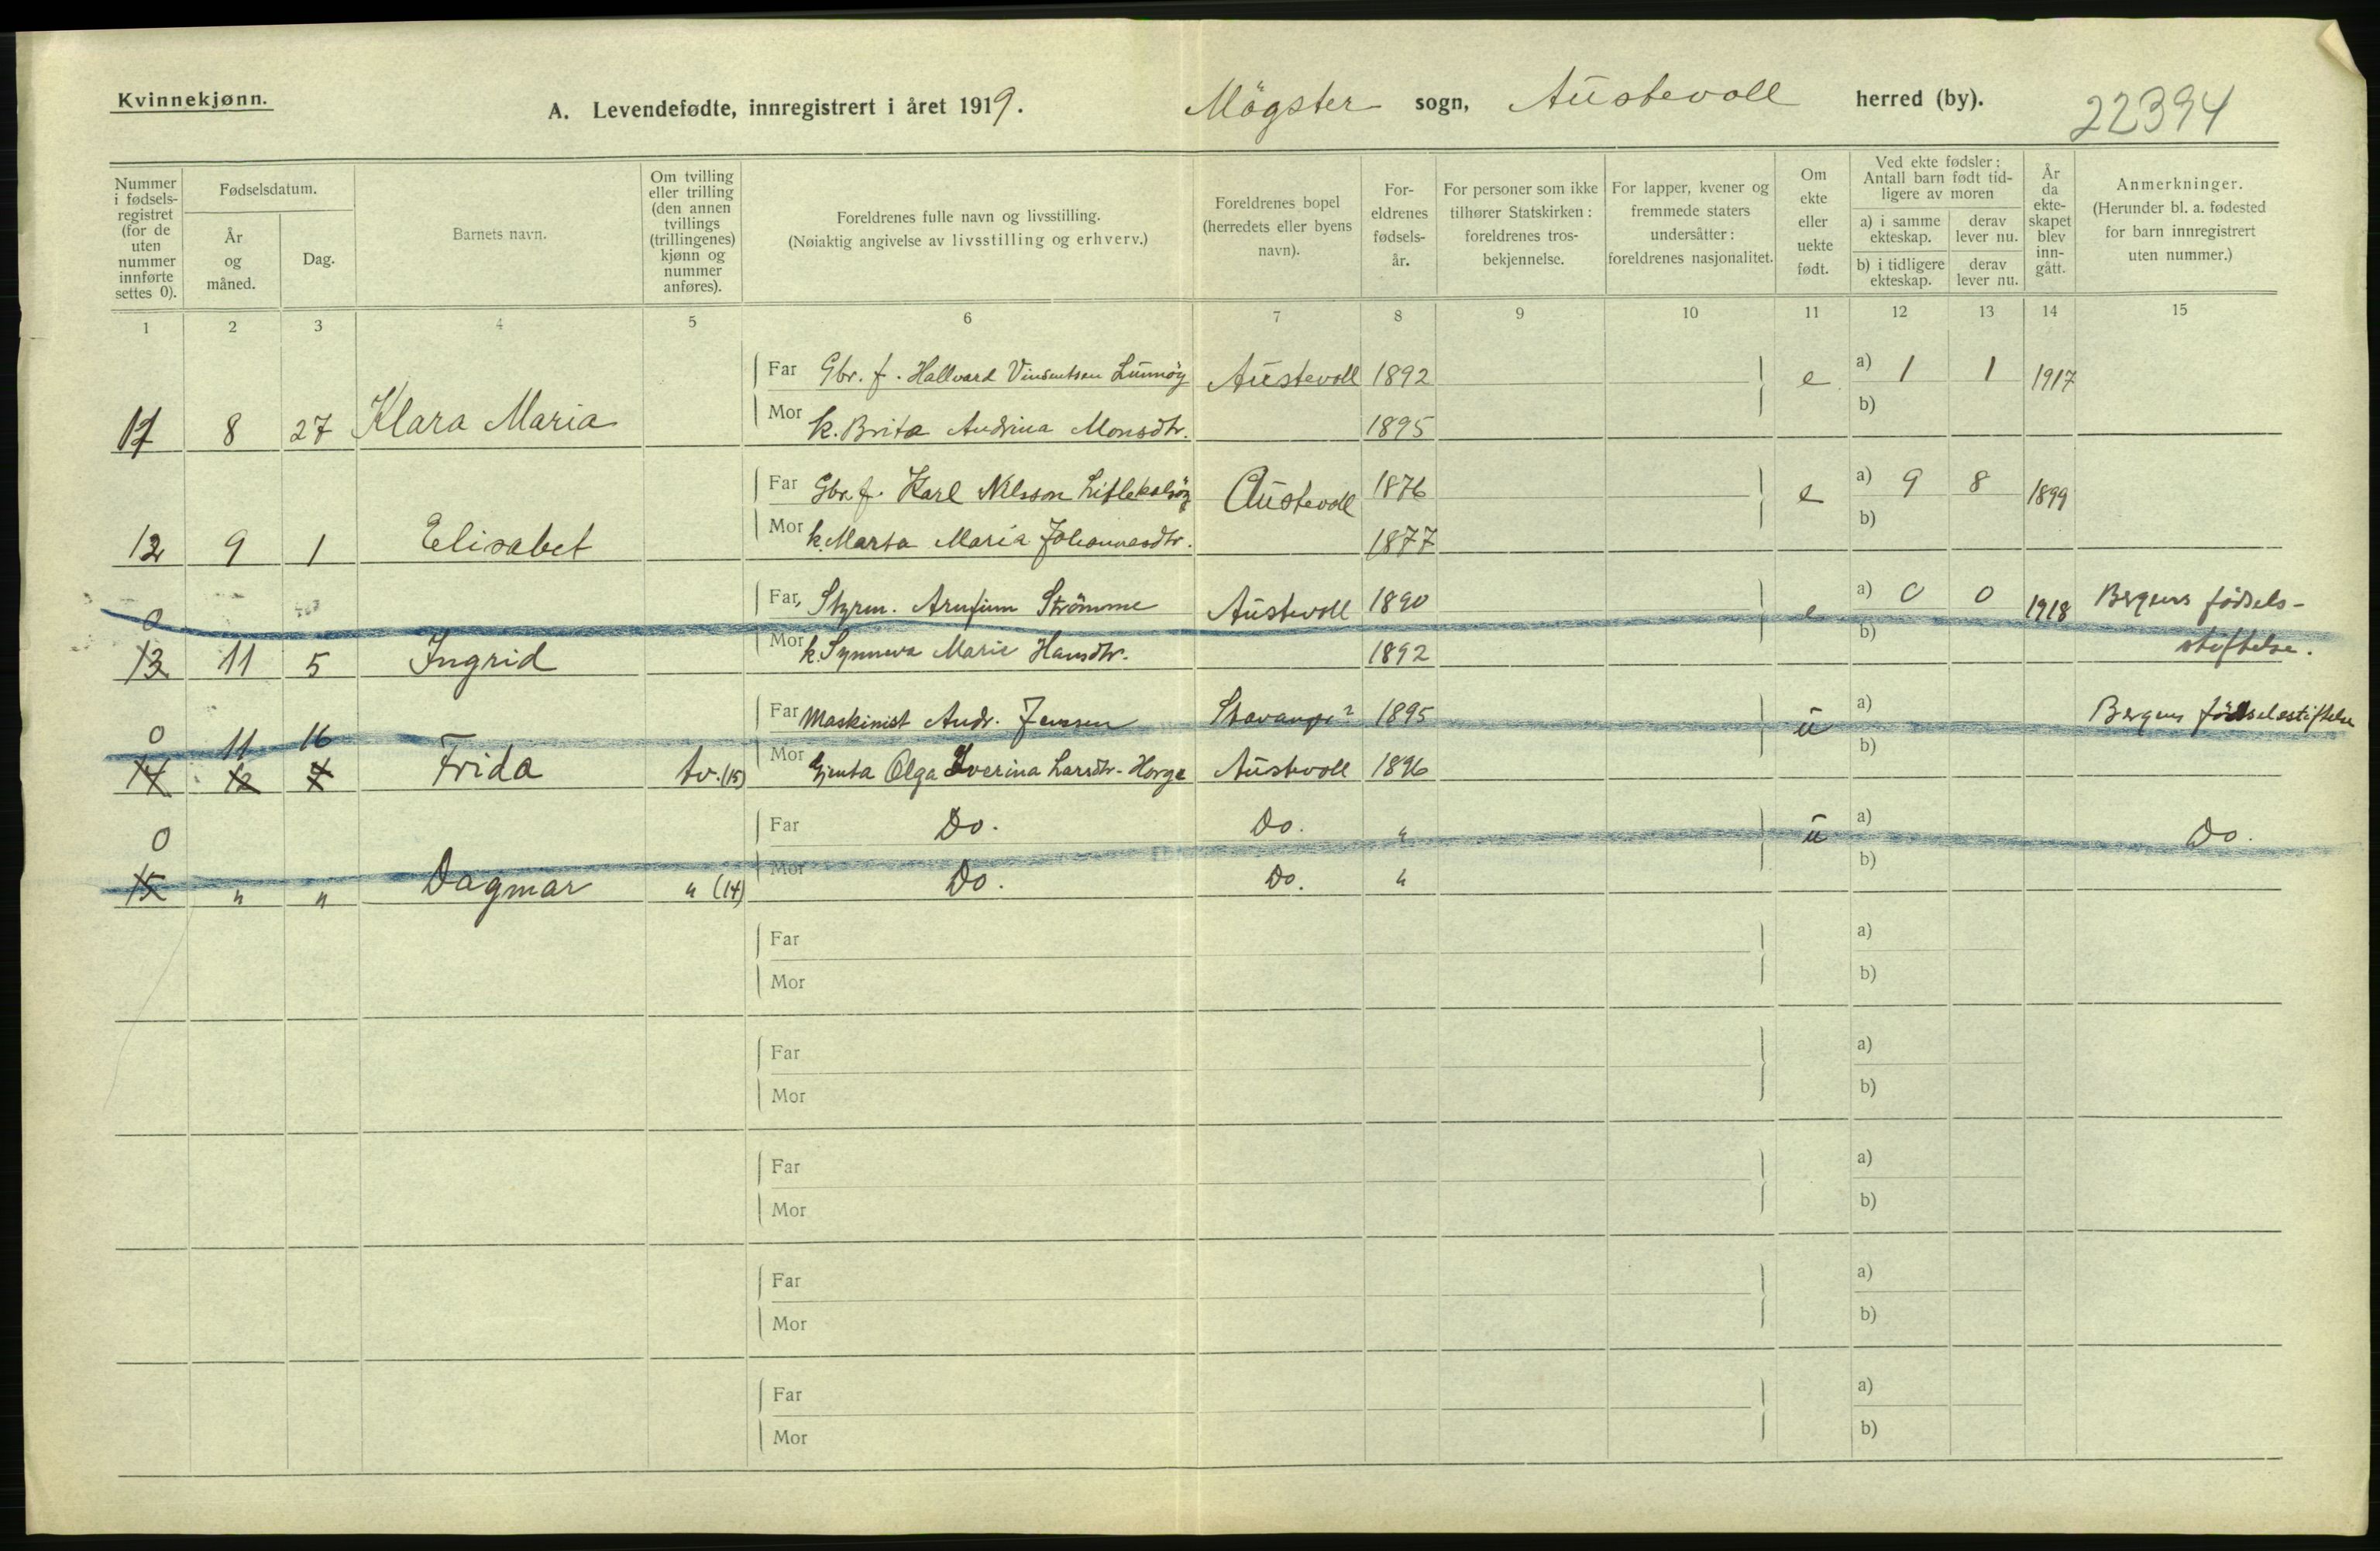 Kvinnekjønn.
A. Levendefødte, innregistrert i året 1919.
Mögster sogn, Austevoll herred (by).
22394
Nummer i fødsels-registret (for de uten nummer innførte settes 0).
Fødselsdatum.
År og måned.
Dag.
Barnets navn.
Om tvilling eller trilling (den annen tvillings (trillingenes) kjønn og nummer anføres).
Foreldrenes fulle navn og livsstilling.
(Nøiaktig angivelse av livsstilling og erhverv.)
Foreldrenes bopel (herredets eller byens navn).
For-eldrenes fødsels-år.
For personer som ikke tilhører Statskirken: foreldrenes tros-bekjennelse.
For lapper, kvener og fremmede staters undersåtter: foreldrenes nasjonalitet.
Om ekte eller uekte født.
Ved ekte fødsler: Antall barn født tid-ligere av moren
a) i samme ekteskap.
derav lever nu.
b) i tidligere ekteskap.
derav lever nu.
År da ekte-skapet blev inn-gått.
Anmerkninger.
(Herunder bl. a. fødested for barn innregistrert uten nummer.)
1 2 3 4 5 6 7 8 9 10 11 12 13 14 15
Far Gbr. f. Hallvard Vinsentsen Lunnöy Austevoll 1892 e a) 1 1 1917
11 8 27 Klara Maria Mor k. Brita Andrina Monsdtr. 1895 b)
Far Gbr. f. Karl Nilsson Austevoll 1876 e a) 9 8 1899
12 9 1 Elisabet Mor k. Marta Maria Johannesdtr. 1877 b)
0 Far Styrm. Arnfinn Strömme Austevoll 1890 e a) 0 0 1918 Bergens födsels-
13 11 5 Ingrid Mor k. Synneva Marie Hansdtr. 1892 b) stiftelse.
0 11 16 Far Maskinist Andr. Jensen Stavanger? 1895 u a) Bergens födselsstiftelse
14 12 7 Frida tv. (15) Mor Gjenta Olga Iverina Larsdtr. Horge Austevoll 1896 b)
0 Far Do. Do. " u a) Do.
15 " " Dagmar " (14) Mor Do. Do. " b)
Far a)
Mor b)
Far a)
Mor b)
Far a)
Mor b)
Far a)
Mor b)
Far a)
Mor b)